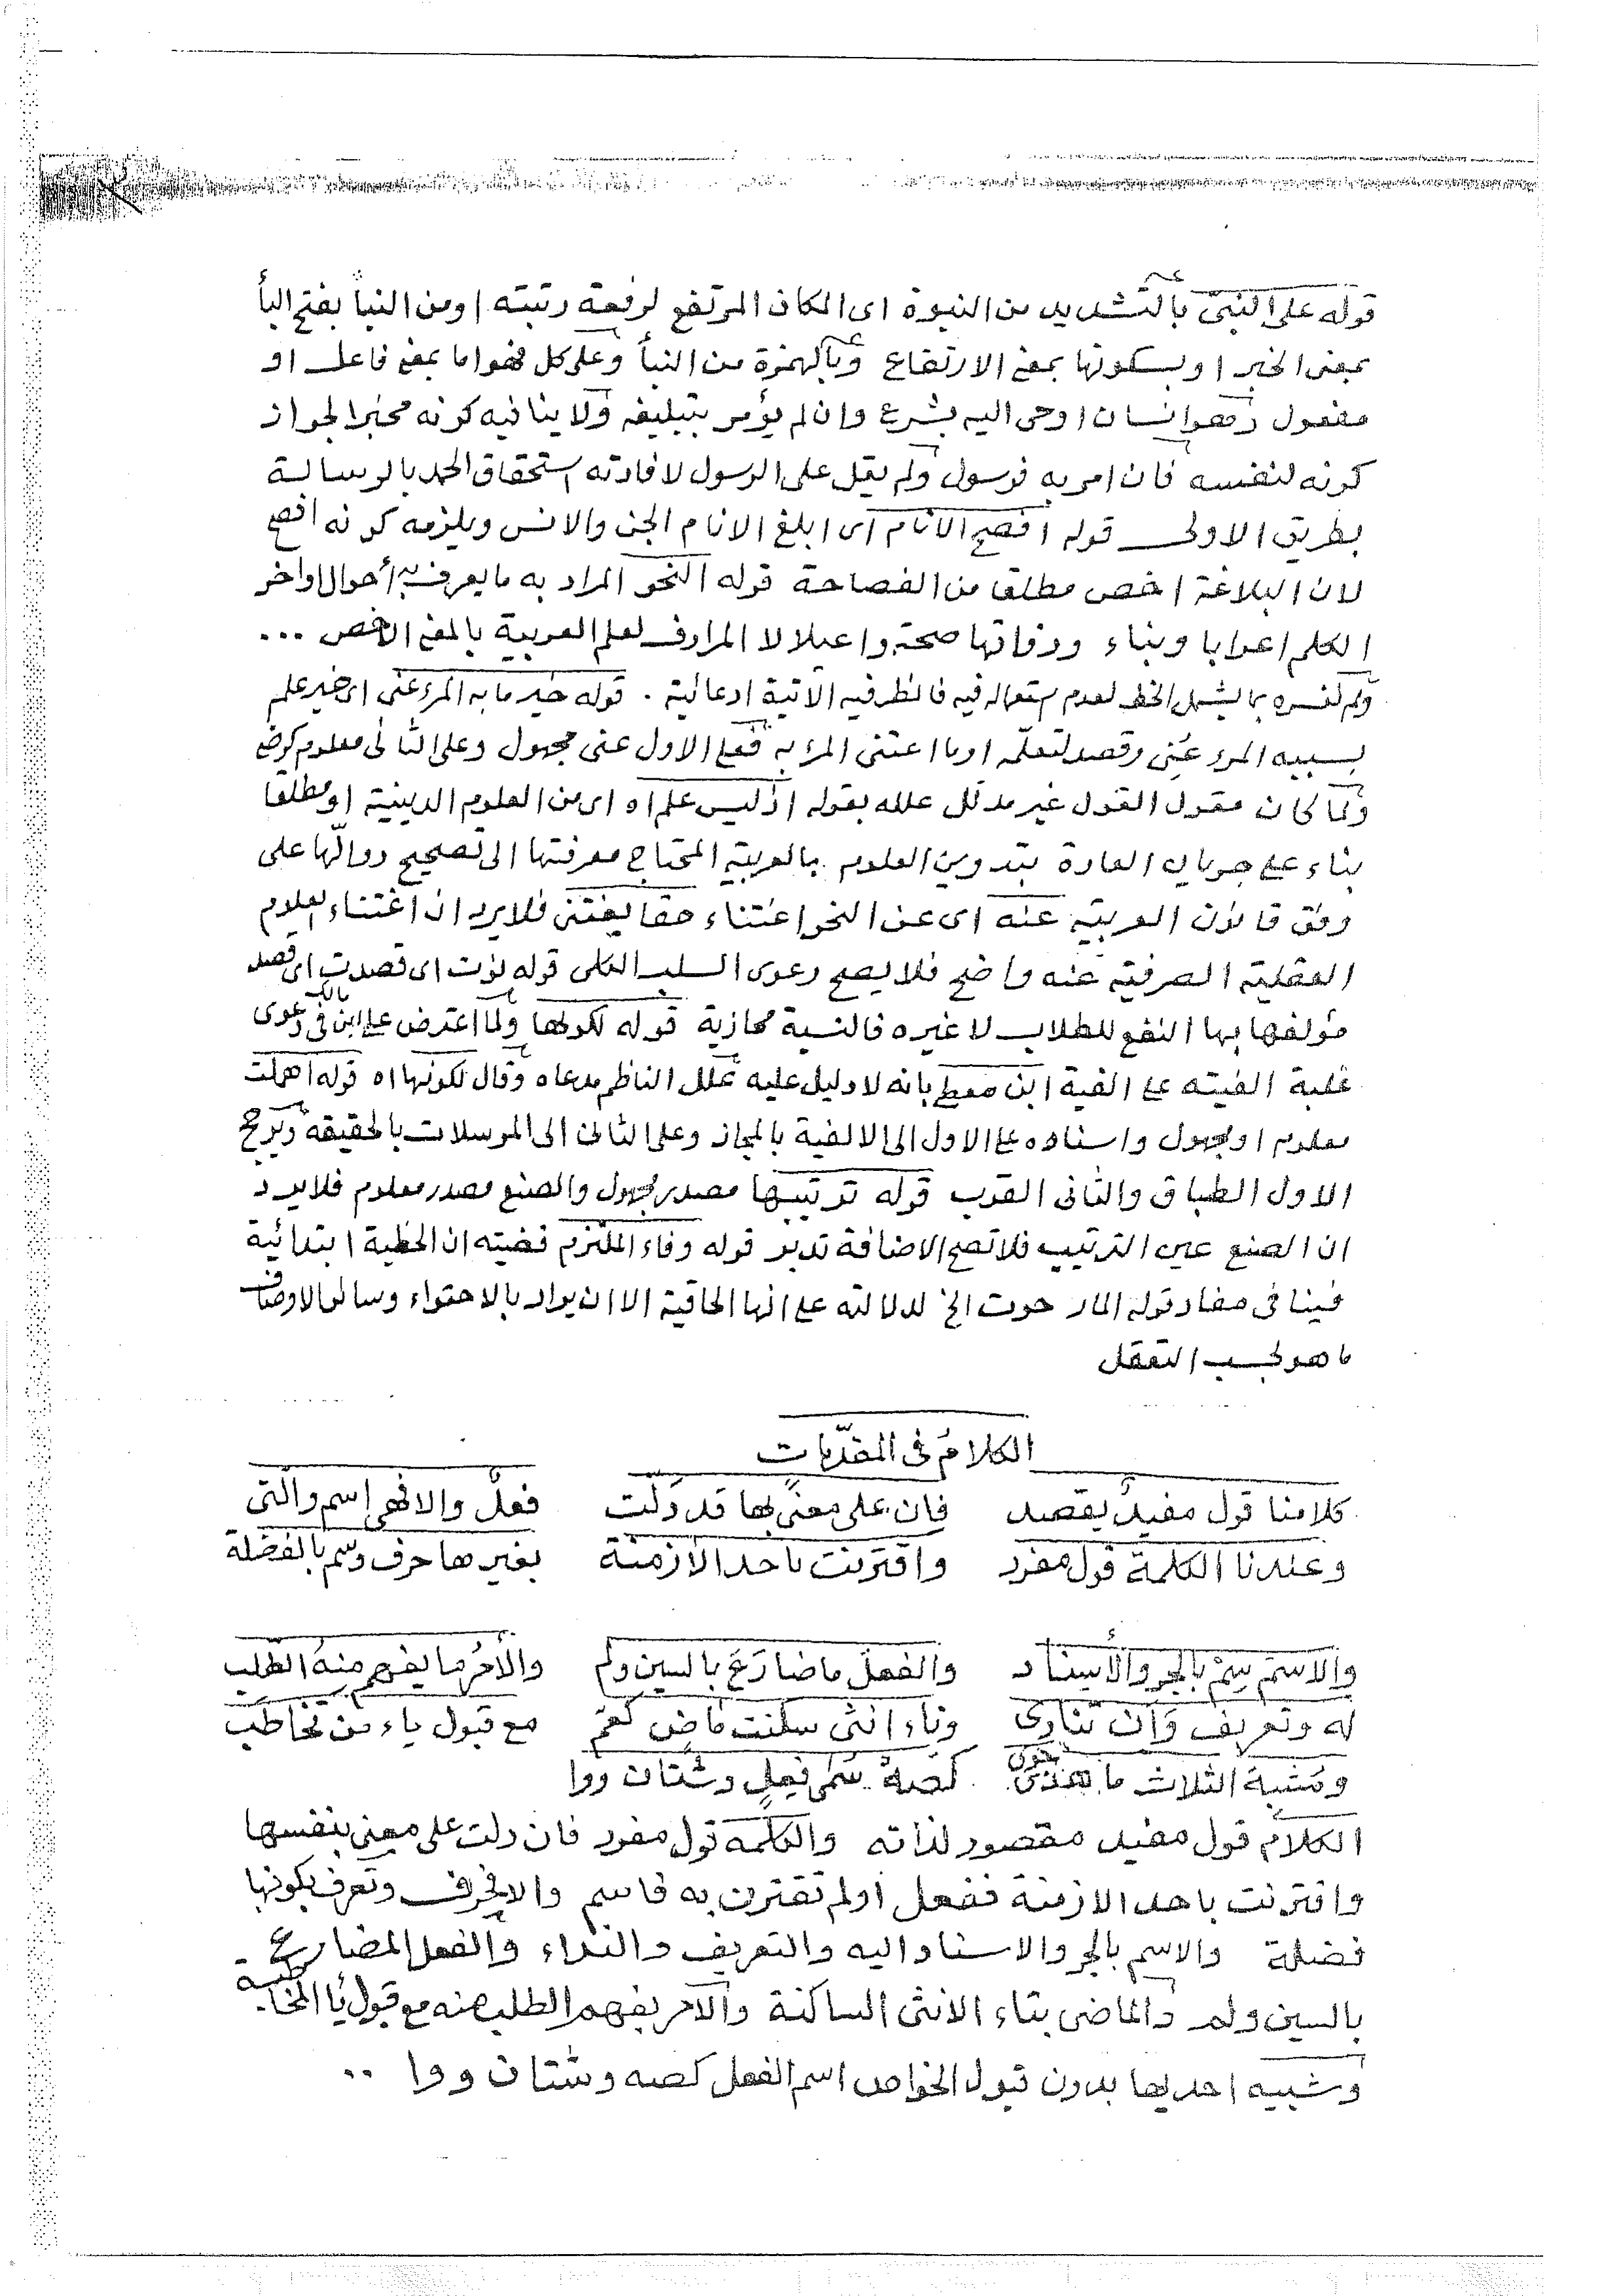 قوله على النبىّ بالتشديد من النبوة اى المكان المرتفع لرفعة رتبته او من النبأ بفتح البأ
بمعنى الخبر او بسكونها بمعنى الارتفاع وبالهمزة من النبأ وعلى كل فهو اما بمعنى فاعل او
مفعول وهو انسان اوحى اليه بشرع وان لم يؤمر بتبليغه ولا ينافيه كونه مخبرا لجواز
كونه لنفسه فان امر به فرسول ولم يقل على الرسول لافادته استحقاق الحمد بالرسالة
بطريق الاولى قوله افصح الانام اى ابلغ الانام الجن والانس ويلزمه كونه افصح
لان البلاغة اخص مطلقا من الفصاحة قوله النحو المراد به ما يعرف به أحوال اواخر
الكلم اعرابا وبناء وذواتها صحة واعتلالا المرادف لعلم العربية بالمعنى الاخص ...
ولم نفسره بما يشمل الخط لعدم استعماله فيه فالظرفية الآتية ادعائية . قوله خير ما به المرء عنى اى خير علم
بسببه المرء عُنِى وقصد لتعلّمه او ما اعتنى المرء به فعلى الاول عنى مجهول وعلى الثانى معلوم كرضى
ولمّا كان مقول القول غير مدلل علله بقوله اذ ليس علم اه اى من العلوم الدينية او مطلقا
بناء على جريان العادة بتدوين العلوم بالعربية المحتاج معرفتها الى تصحيح دوالّها على
وفق قانون العربية عنه اى عن النحو اغتناء حقا يغتنى فلا يرد ان اغتناء العلوم
العقلية الصرفية عنه واضح فلا يصح دعوى السلب الكلى قوله نوت اى قصدت اى قصد
مؤلفها بها النفع للطلاب لا غيره فالنسبة مجازية قوله لكونها ولما اعترض على ابن مالك فى دعوى
غلبة الفيته على الفية ابن معط بانه لا دليل عليه علل الناظم مدعاه وقال لكونها اه قوله اهملت
معلوم او مجهول واسناده على الاول الى الالفية بالمجاز وعلى الثانى الى المرسلات بالحقيقة ويرجح
الاول الطباق والثانى القرب قوله ترتيبها مصدر مجهول والصنع مصدر معلوم فلا يرد
ان الصنع عين الترتيب فلا تصح الاضافة تدبر قوله وفاء الملتزم قضيته ان الخطبة ابتدائية
فينافى مفاد قوله المار حوت الخ لدلالته على انها الحاقية الا ان يراد بالاحتواء وسائر الاوصاف
ما هو بحسب التعقل
الكلامُ فى المقدّمات
كلامنا قول مفيدٌ يقصد فان على معنًى بها قد دَلّت فعلٌ والا فهى اسم والّتى
وعندنا الكلمة قول مفرد واقترنت باحد الأزمنة بغيرها حرف وسم بالفضلة
والاسم سِمْ بالجر والأسناد والفعل ما ضارَعَ بالسين ولم والأمرُ ما يفهم منهُ الطلب
له وتعريف وَأن تنادى وتاء انثى سكنت ماضٍ كعمّ مع قبول ياء من تخاطب
ومشبهَ الثلاث ما حوى كصه سَمّ فعلٍ وشتّان ووا
الكلام قول مفيد مقصور لذاته والكلمة قول مفرد فان دلت على معنى بنفسها
واقترنت باحد الازمنة ففعل او لم تقترن به فاسم والا فحرف وتعرف بكونها
فضلة والاسم بالجر والاسناد اليه والتعريف والنداء والفعل المضارع
بالسين ولم والماضى بتاء الانثى الساكنة والامر بفهم الطلب منه مع قبول يا المخاطبة
وشبيه احديها بدون قبول الخواص اسم الفعل كصه وشتان ووا ..